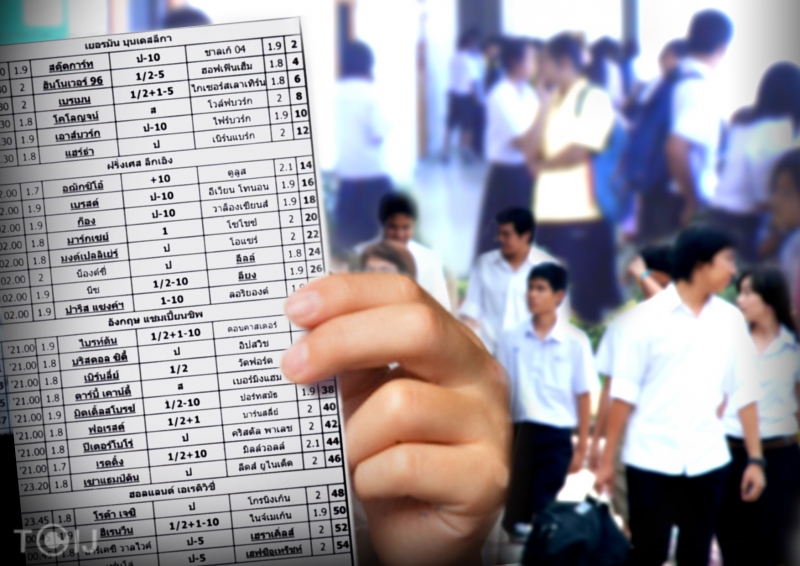 เยอรมัน บุนเดสลีกา
สตุ๊ตการ์ท ป-10 ชาลเก้ 04 1.9 2
1.9 ฮันโนเวอร์ 96 1/2-5 ฮอฟเฟ่นเฮ้ม 1.8 4
2 เบรเมน 1/2+1-5 ไกเซอร์สเลาเทิร์น 1.8 6
1.8 โคโลญจน์ ส โวล์ฟบวร์ก 2 8
.30 1.9 เอาส์บวร์ก ป-10 ไฟร์บวร์ก 1.9 10
.30 1.8 แฮร์ธ่า ป เนิร์นแบร์ก 2 12
ฝรั่งเศส ลีกเอิง
2.00 1.7 อฌักซิโอ้ +10 ตูลูส 2.1 14
02.00 1.9 เบรสต์ ป-10 เอวียง โทนอน 1.9 16
02.00 1.9 ก็อง ป-10 วาล็องเซียนส์ 1.9 18
02.00 1.8 มาร์กเซย์ 1 โซโชซ์ 2 20
02.00 1.8 มงต์เปลลิเย่ร์ ป โอแซร์ 2 22
02.00 2 น็องต์ซี่ ป ลีลล์ 1.8 24
02.00 1.9 นีซ 1/2-10 ลียง 1.9 26
02.00 1.9 ปารีส แซงต์ฯ 1-10 ลอริยองต์
อังกฤษ แชมเปี้ยนชิพ
'21.00 1.9 ไบรท์ตัน 1/2+1-10 ดอนคาสเตอร์
'21.00 1.9 บริสตอล ซิตี้ ป อิปสวิช
'21.00 2 เบิร์นลี่ย์ 1/2 วัตฟอร์ด
'21.00 2 คาร์ดิฟฟ์ ซิตี้ ส เบอร์มิงแฮม
'21.00 2 มิดเดิ้ลสโบรซ์ 1/2-10 ปอร์ทสมัธ 1.9 38
'21.00 2 ฟอเรสต์ 1/2+1 บาร์นสลีย์ 2 40
'21.00 2 ปีเตอร์โบโร่ ป คริสตัล พาเลซ 2 42
'21.00 1.7 เรดดิ้ง 1/2+10 มิลล์วอลล์ 2.1 44
'23.20 1.8 เซาแธมป์ตัน ป ลีดส์ ยูไนเต็ด 2 46
ฮอลแลนด์ เอเรดิวิซี่
23.45 1.8 โรด้า เจซี ป โกรนิงเก้น 2 48
1.8 ฮีเรนวีน 1/2+1-10 ไนจ์เมเก้น 1.9 50
วาลไวค์ ป-5 เฮราเคิลส์ 2 52
ป-5 เฮฟซิอเทร็ชท์ 2 54
TCIJ